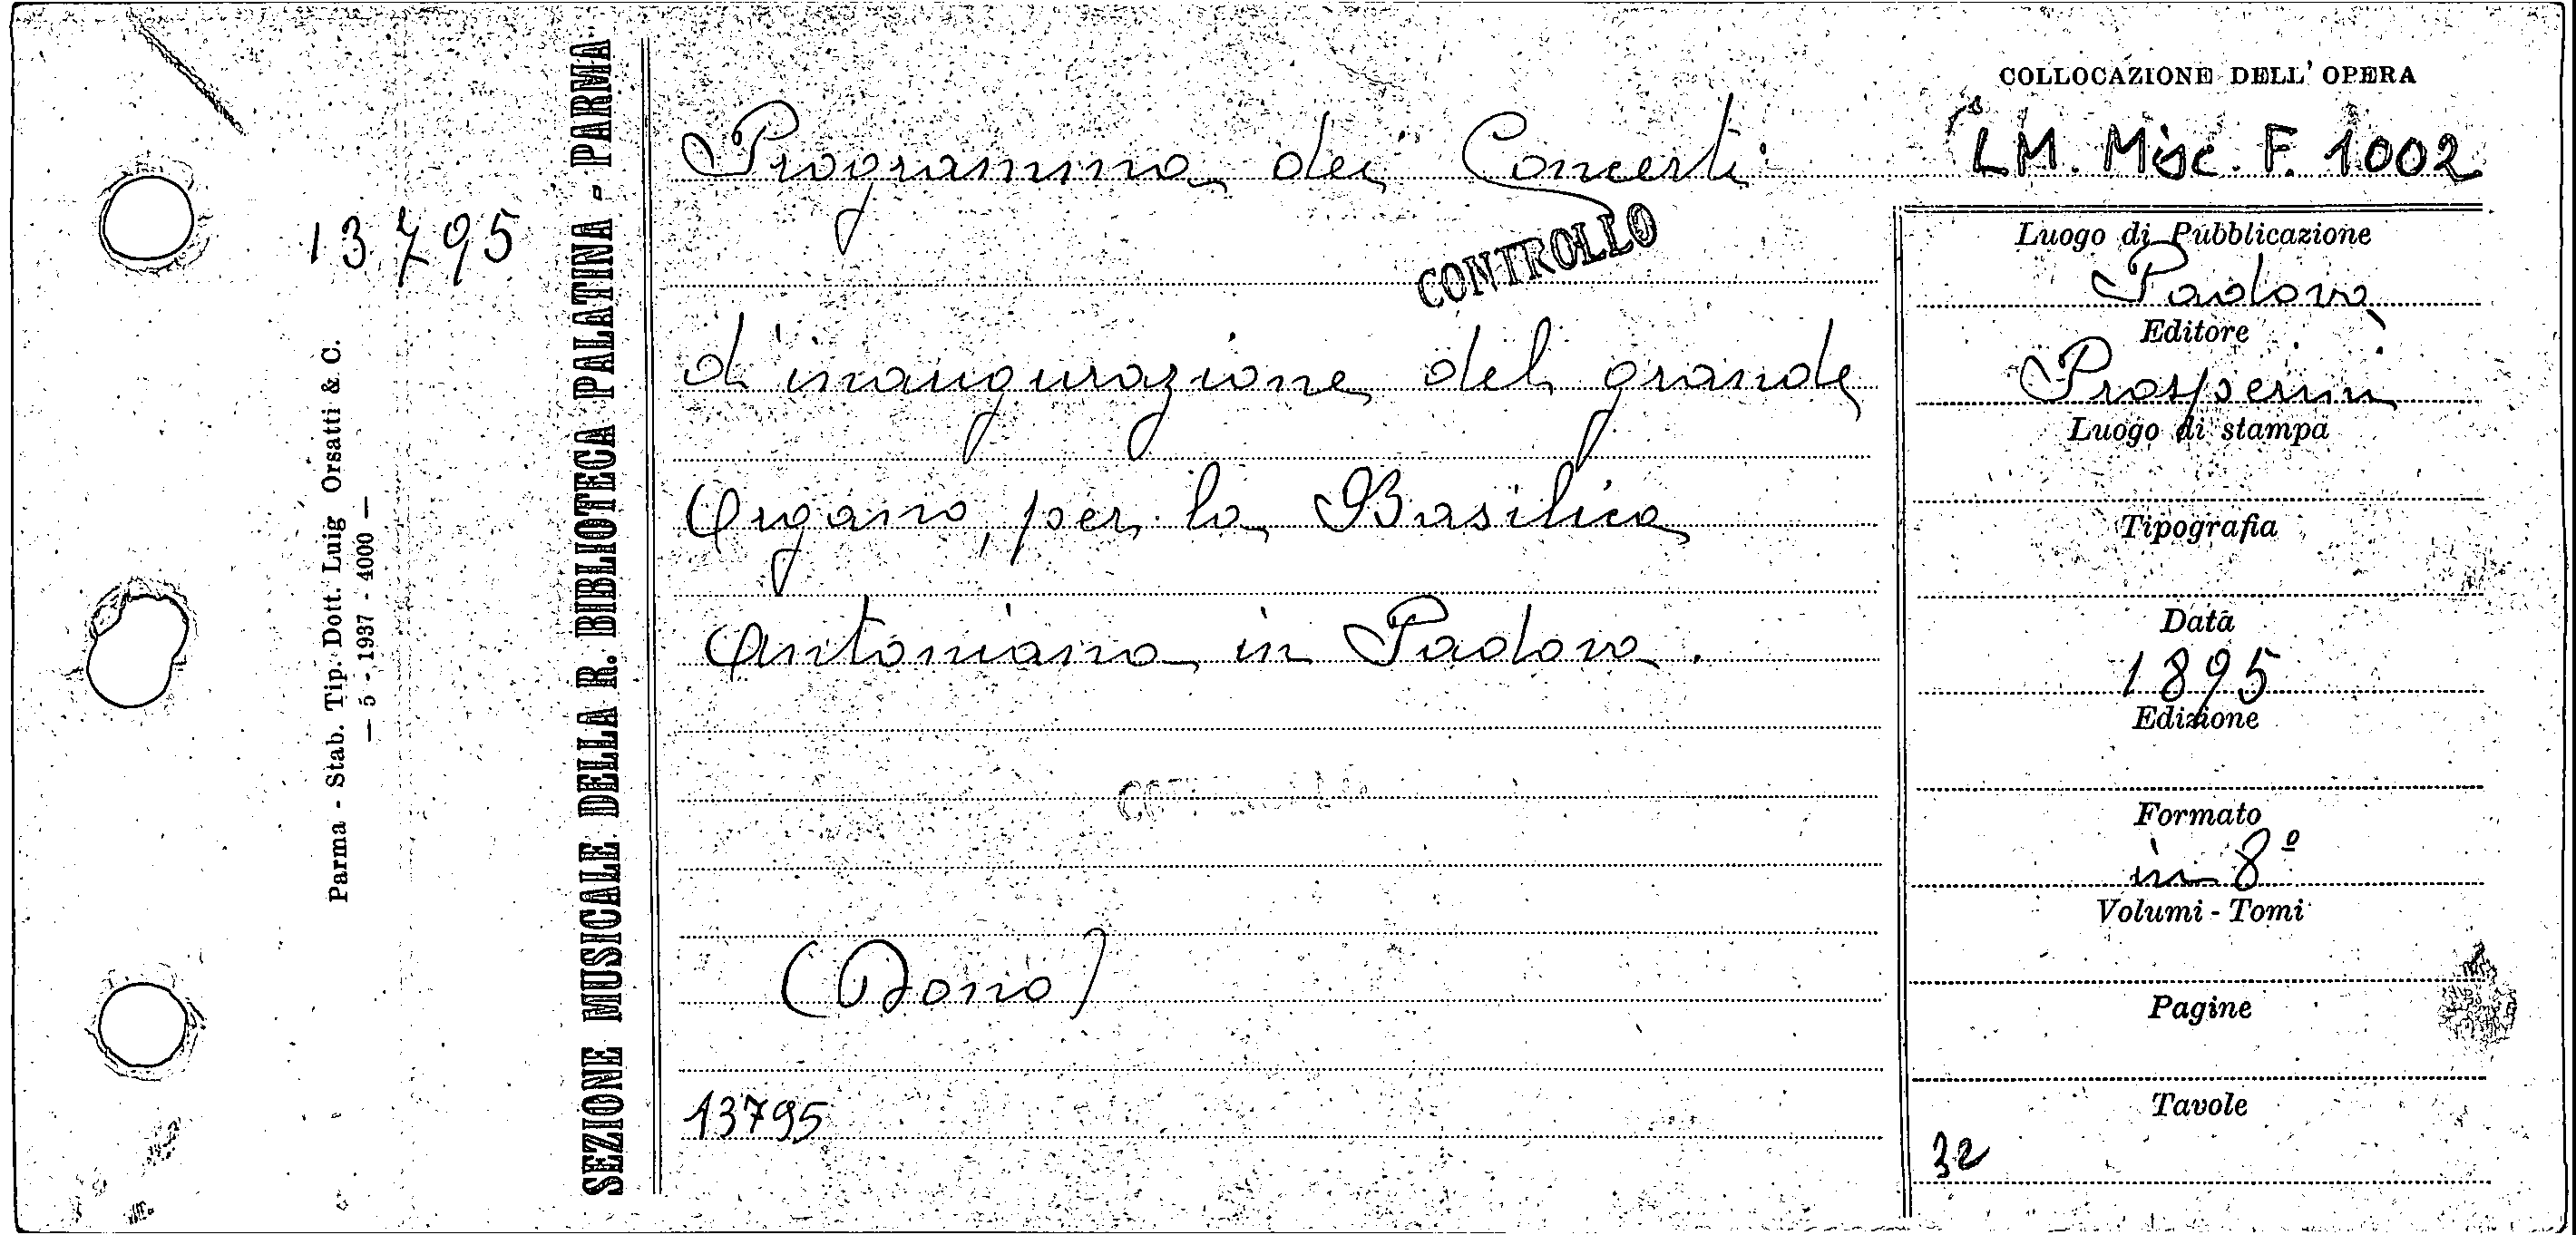 COLLOCAZIONE DELL' OPERA
LM. Misc. F. 1002
13795
Parma - Stab. Tip. Dott. Luig Orsatti & C.
— 5 - 1937 - 4000 —
SEZIONE MUSICALE DELLA R. BIBLIOTECA PALATINA - PARMA
Programma dei Concerti
CONTROLLO
d'inaugurazione del grande
Organo, per la Basilica
Antoniana in Padova.
(Dono)
13795
Luogo di Pubblicazione
Padova
Editore
Prosperini
Luogo di stampa
Tipografia
Data
1895
Edizione
Formato
in 8º
Volumi - Tomi
Pagine
Tavole
32